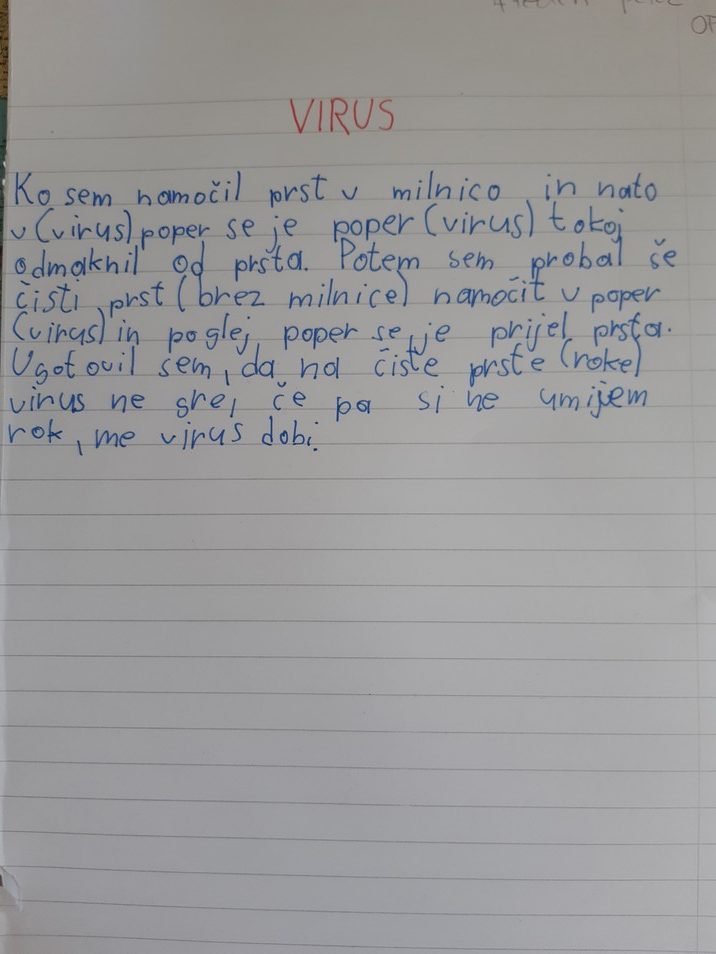 VIRUS
Ko sem namočil prst v milnico in nato
v (virus) poper se je poper (virus) tokoj
odmaknil od prsta. Potem sem probal še
čisti prst (brez milnice) namočit v poper
(virus) in poglej poper se je prijel prsta.
Ugotovil sem, da na čiste prste (roke)
virus ne gre, če pa si ne umijem
rok, me virus dobi.